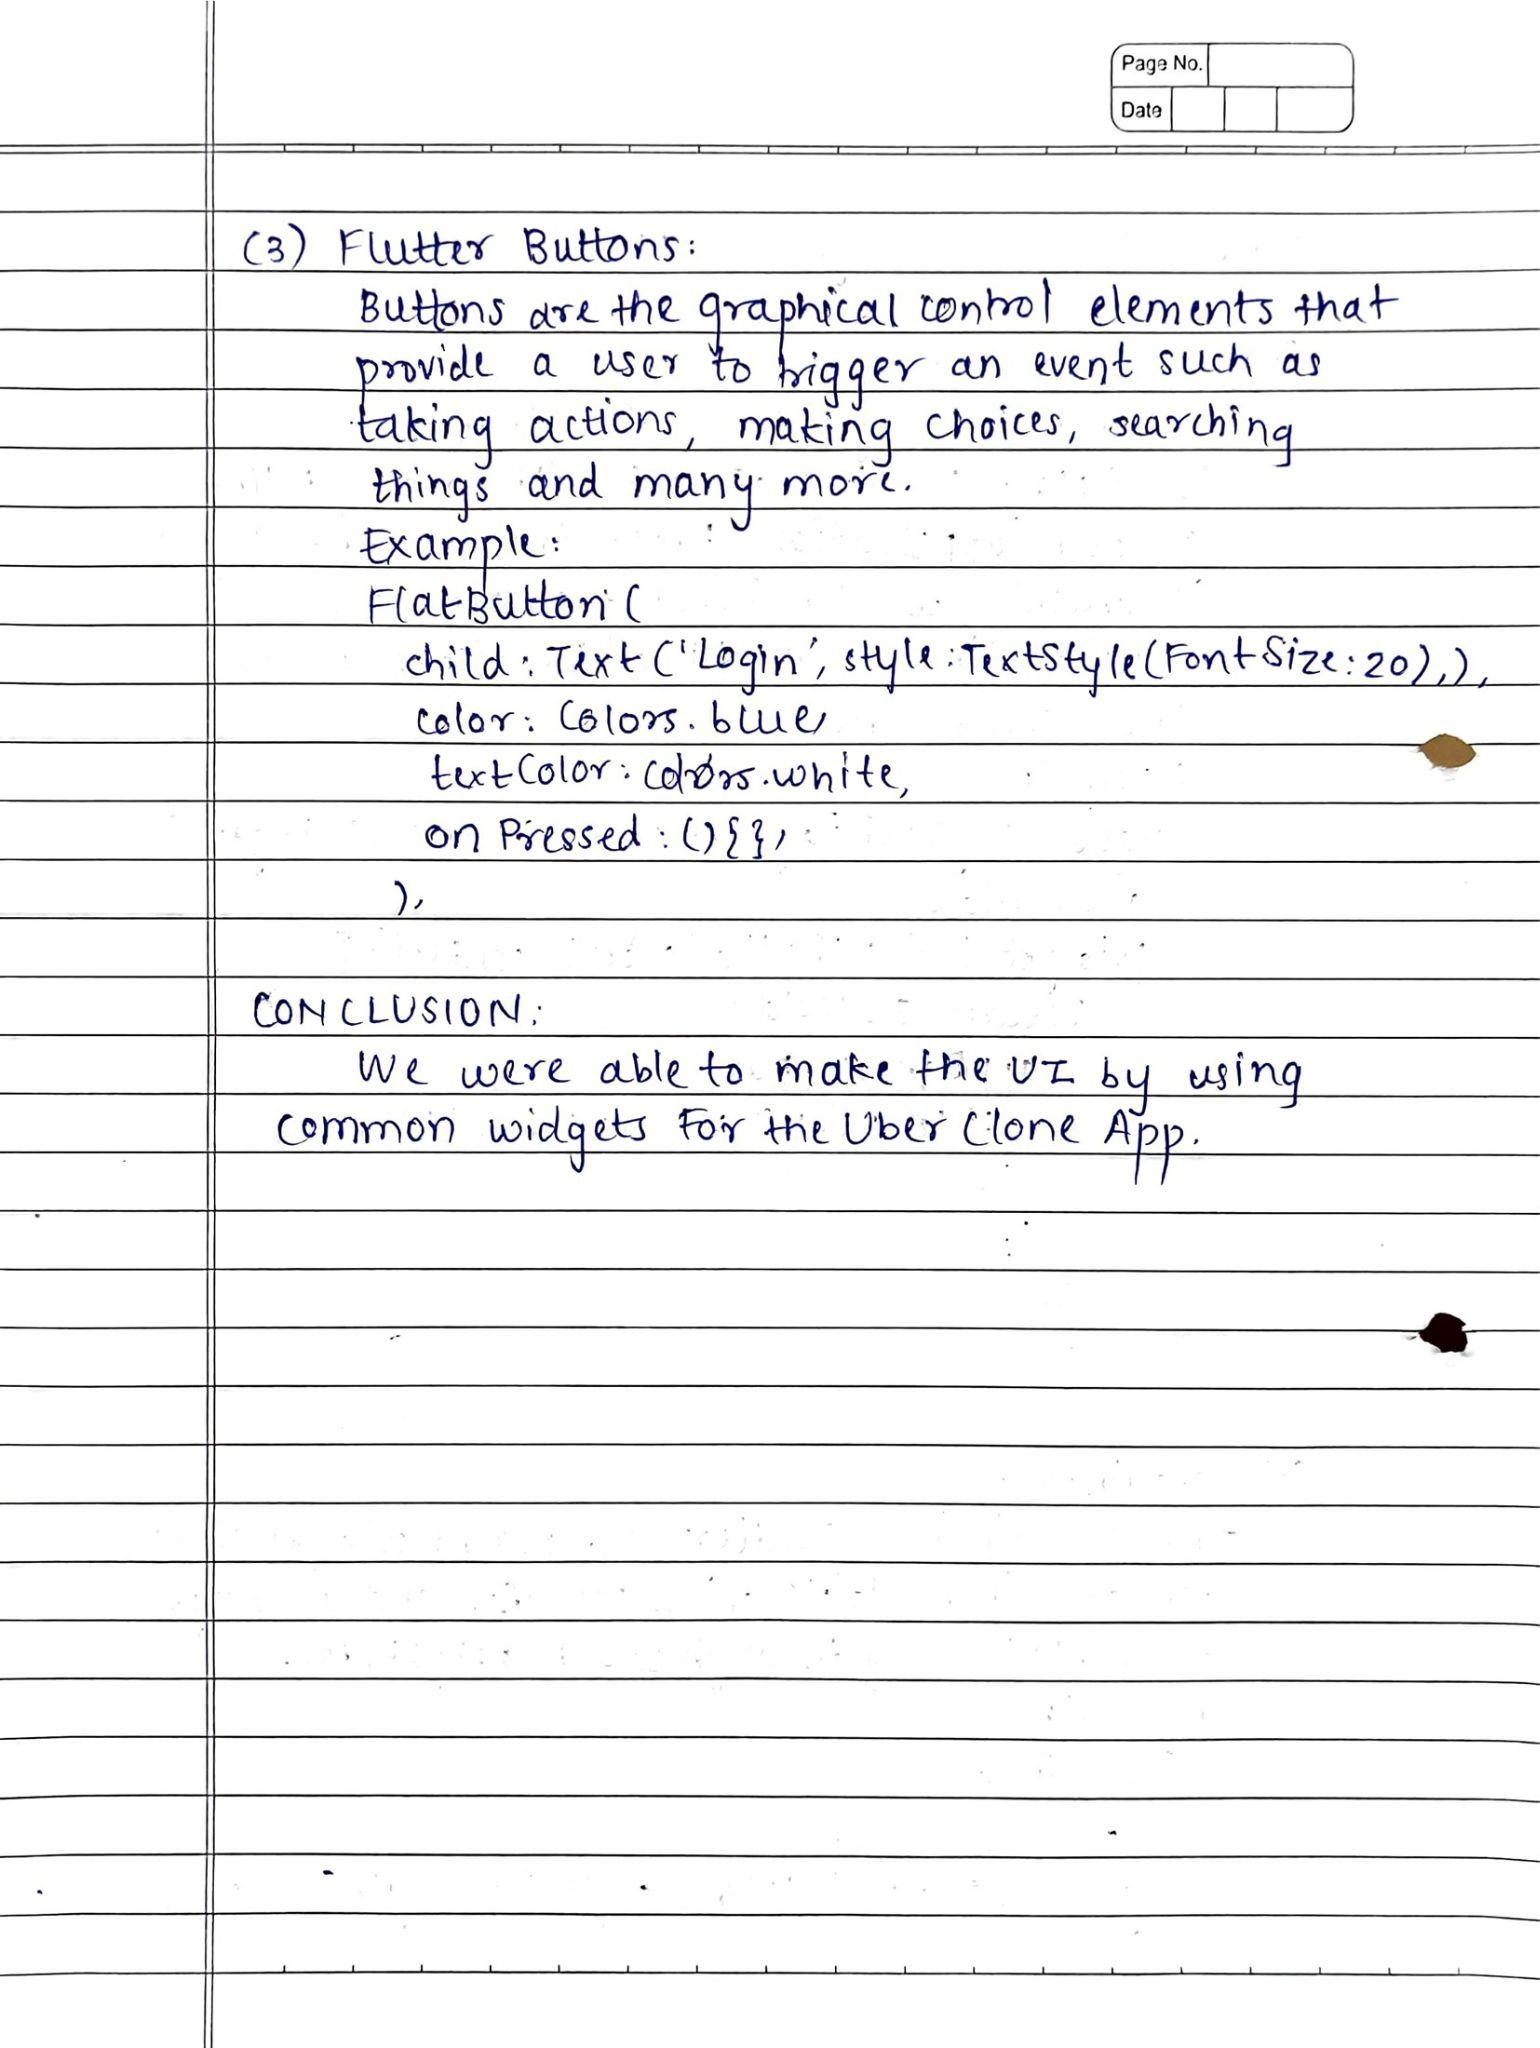 Page No.
Date
(3) Flutter Buttons:
Buttons are the graphical control elements that
provide a user to trigger an event such as
taking actions, making choices, searching
things and many more.
Example:
FlatButton (
child: Text ('Login', style: TextStyle (FontSize: 20),),
color: Colors.blue,
textColor: Colors.white,
on Pressed: () {},
),
CONCLUSION:
We were able to make the UI by using
common widgets for the Uber Clone App.